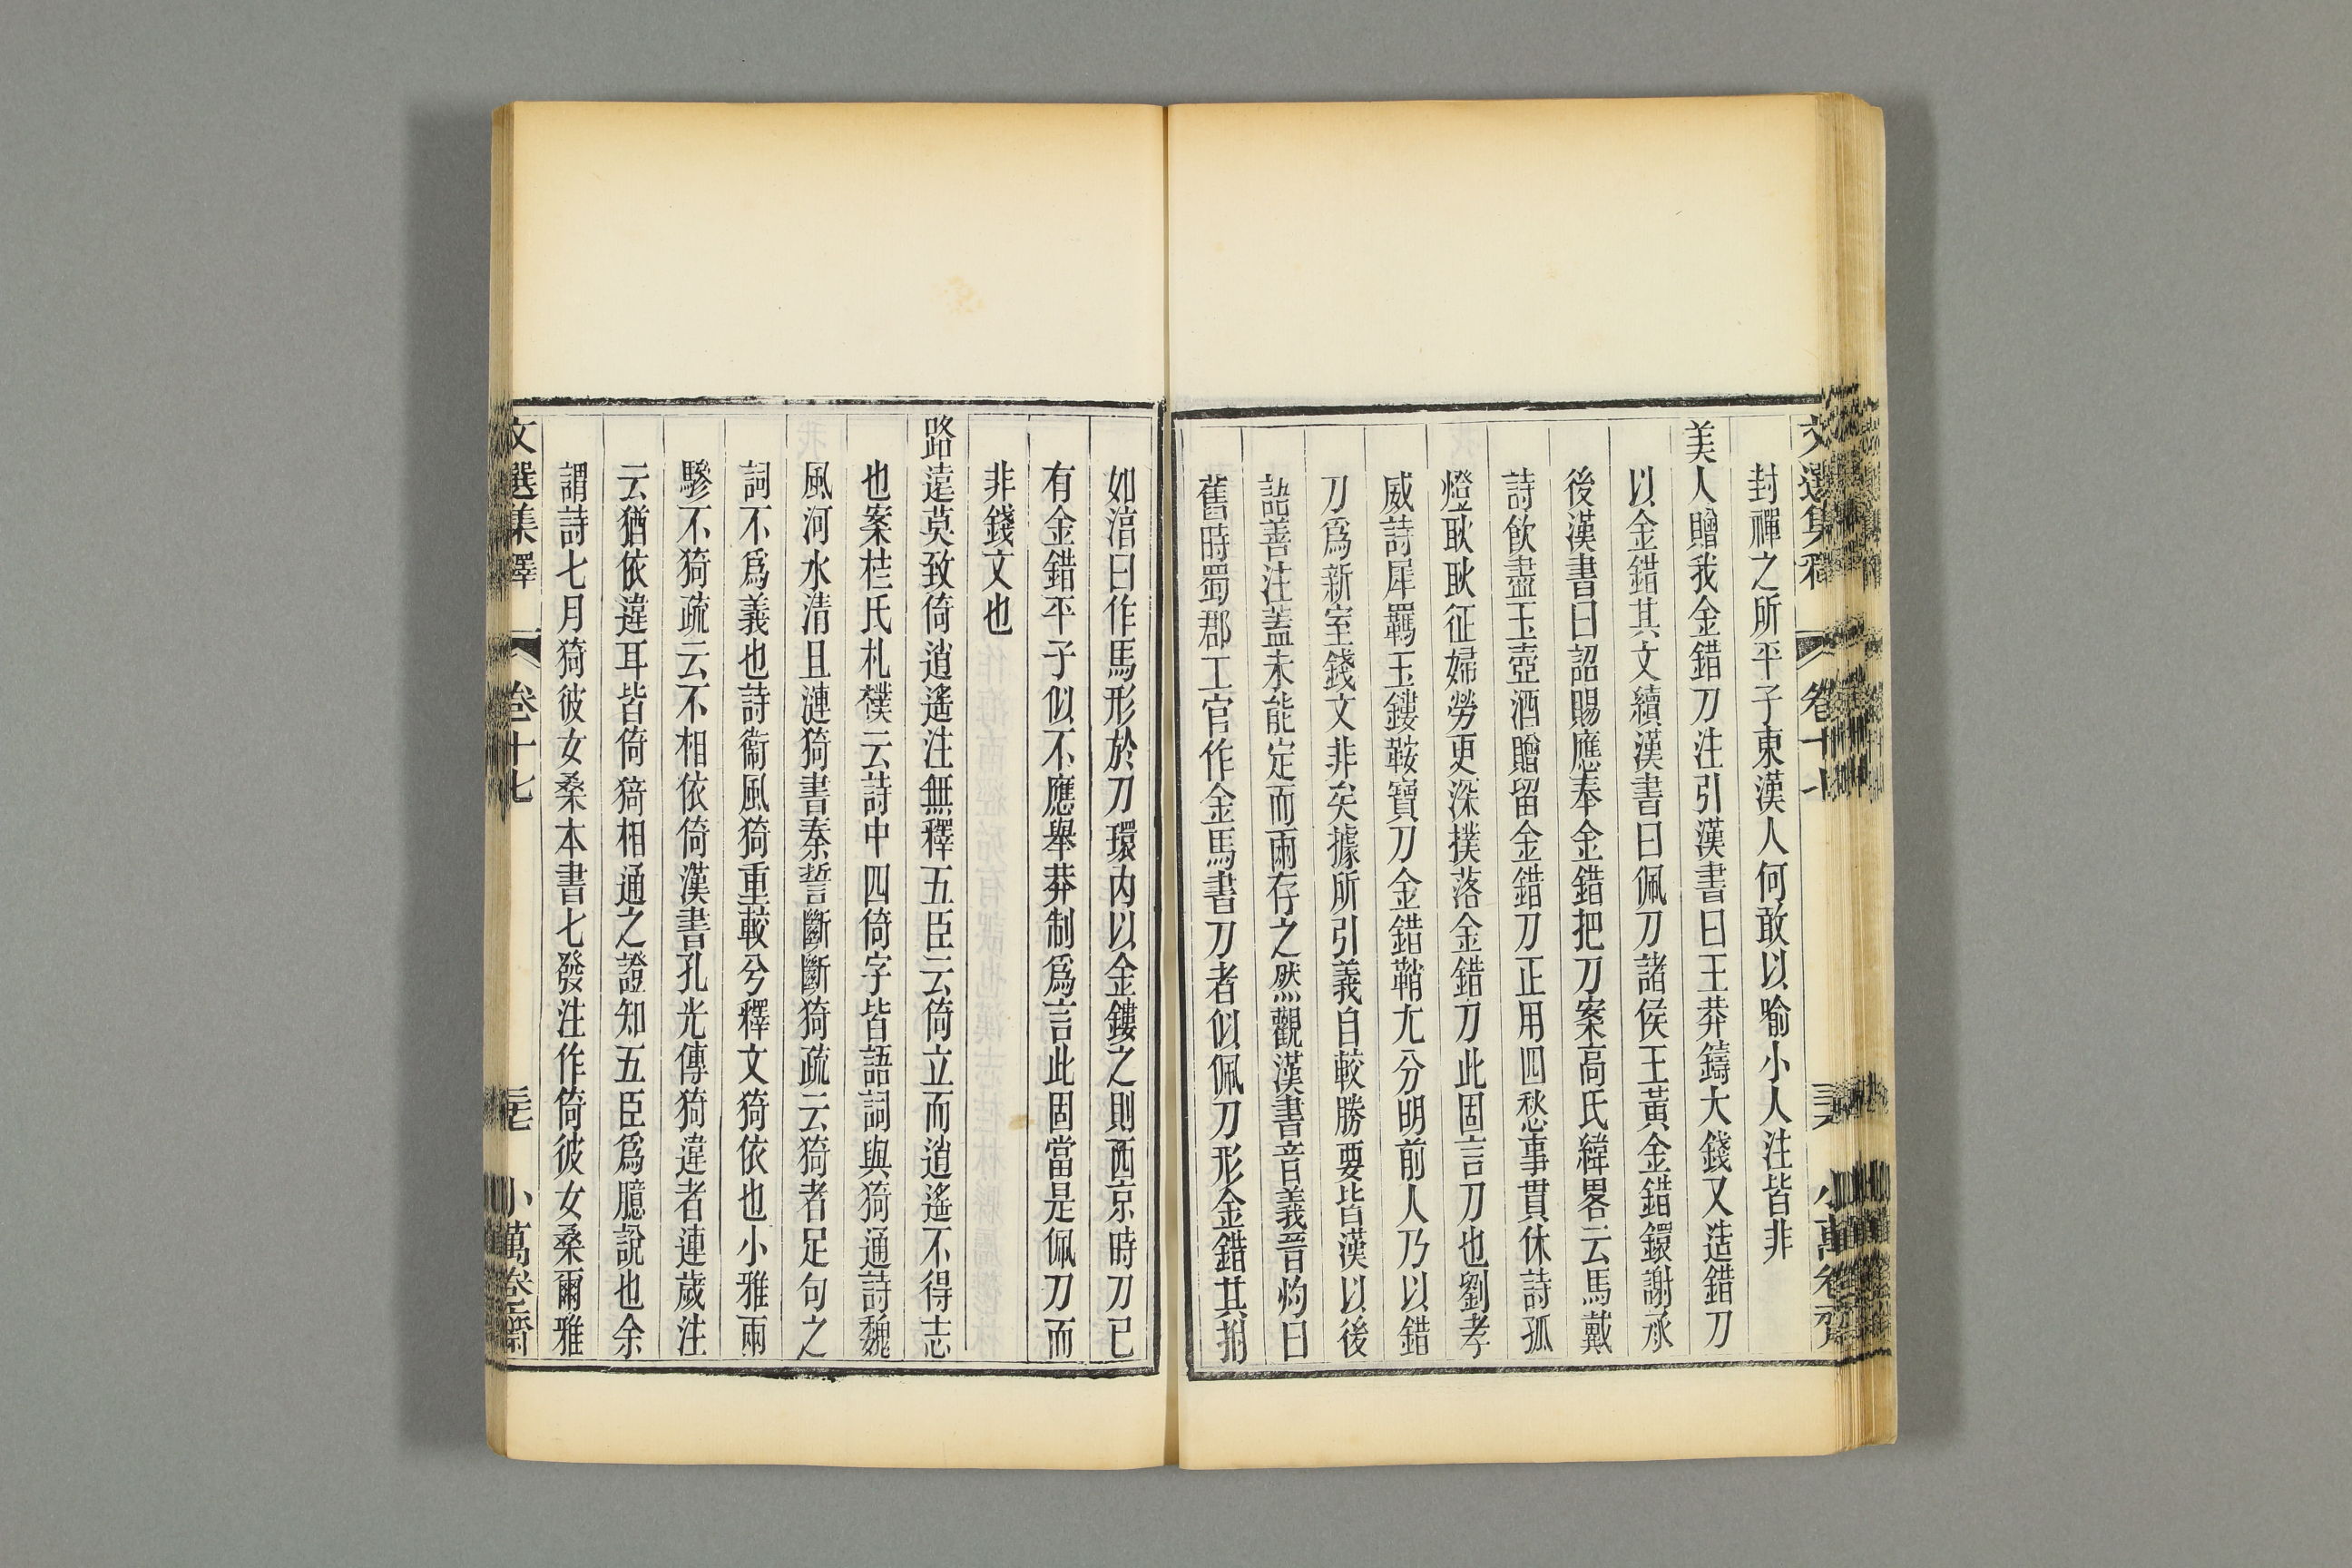 文選集釋 卷十七 小萬卷齋
封禪之所平子東漢人何敢以喻小人注皆非
美人贈我金錯刀注引漢書曰王莽鑄大錢又造錯刀
以金錯其文續漢書曰佩刀諸侯王黃金錯鐶謝承
後漢書曰詔賜應奉金錯把刀案高氏緯畧云馬戴
詩飲盡玉壺酒贈留金錯刀正用四愁事貫休詩孤
燈耿耿征婦勞更深撲落金錯刀此固言刀也劉孝
威詩犀羈玉鏤鞍寶刀金錯鞘尤分明前人乃以錯
刀爲新室錢文非矣據所引義自較勝要皆漢以後
語善注蓋未能定而兩存之然觀漢書音義晉灼曰
舊時蜀郡工官作金馬書刀者似佩刀形金錯其拊
如淳曰作馬形於刀環內以金鏤之則西京時刀已
有金錯平子似不應舉莽制爲言此固當是佩刀而
非錢文也
路遠莫致倚逍遙注無釋五臣云倚立而逍遙不得志
也案桂氏札樸云詩中四倚字皆語詞與猗通詩魏
風河水清且漣猗書秦誓斷斷猗疏云猗者足句之
詞不爲義也詩衞風猗重較兮釋文猗依也小雅兩
驂不猗疏云不相依倚漢書孔光傳猗違者連歲注
云猶依違耳皆倚猗相通之證知五臣爲臆說也余
謂詩七月猗彼女桑本書七發注作倚彼女桑爾雅
文選集釋 卷十七 三七 小萬卷齋